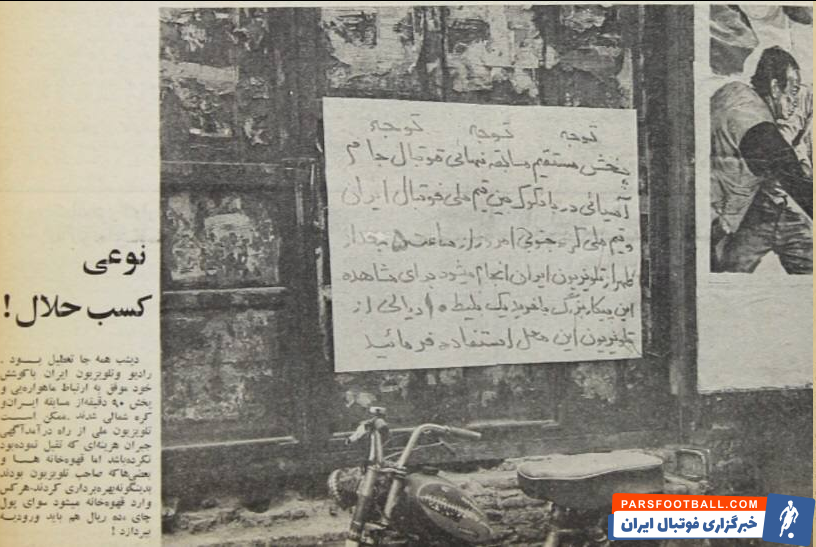 توجه توجه توجه
پخش مستقیم مسابقه نهائی فوتبال جام
آسیائی در بانکوک بین تیم ملی فوتبال ایران
و تیم ملی کره جنوبی امروز از ساعت ۵ بعداز
ظهر از تلویزیون ایران انجام میشود برای مشاهده
این پیکار بزرگ با خرید یک بلیط ۱۰ ریالی از
تلویزیون این محل استفاده فرمائید
نوعی
کسب حلال!
دیشب همه جا تعطیل بـــود .
رادیو وتلویزیون ایران باکوشش
خود موفق به ارتباط ماهواره‌یی و
پخش ۹۰ دقیقه‌از مسابقه ایـران‌و
کره شمالی شدند .ممکن اســت
تلویزیون ملی از راه درآمدآگهی
جبران هزینه‌ای که تقبل نموده‌بود
نکرده‌باشد اما قهوه‌خانه هـــا و
بعضی‌هاکه صاحب تلویزیون بودند
بدینگونه‌بهره‌برداری کردند-هرکس
وارد قهوه‌خانه میشود سوای پول
چای ،ده ریال هم باید ورودیــه
بپردازد !
PARSFOOTBALL.COM
خبرگزاری فوتبال ایران